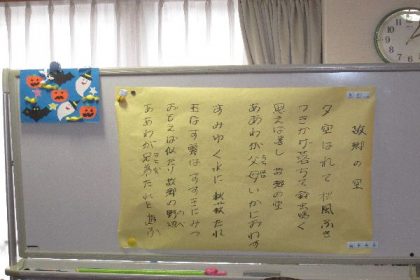 故郷の空
夕空はれて 秋風ふき
つきかげ落ちて 鈴虫鳴く
思えば遠し 故郷の空
ああわが父母いかにおわす
すみゆく水に 秋萩たれ
玉なす露は すすきにみつ
おもえば似たり 故郷の野辺
ああわが兄弟たれと遊ぶ